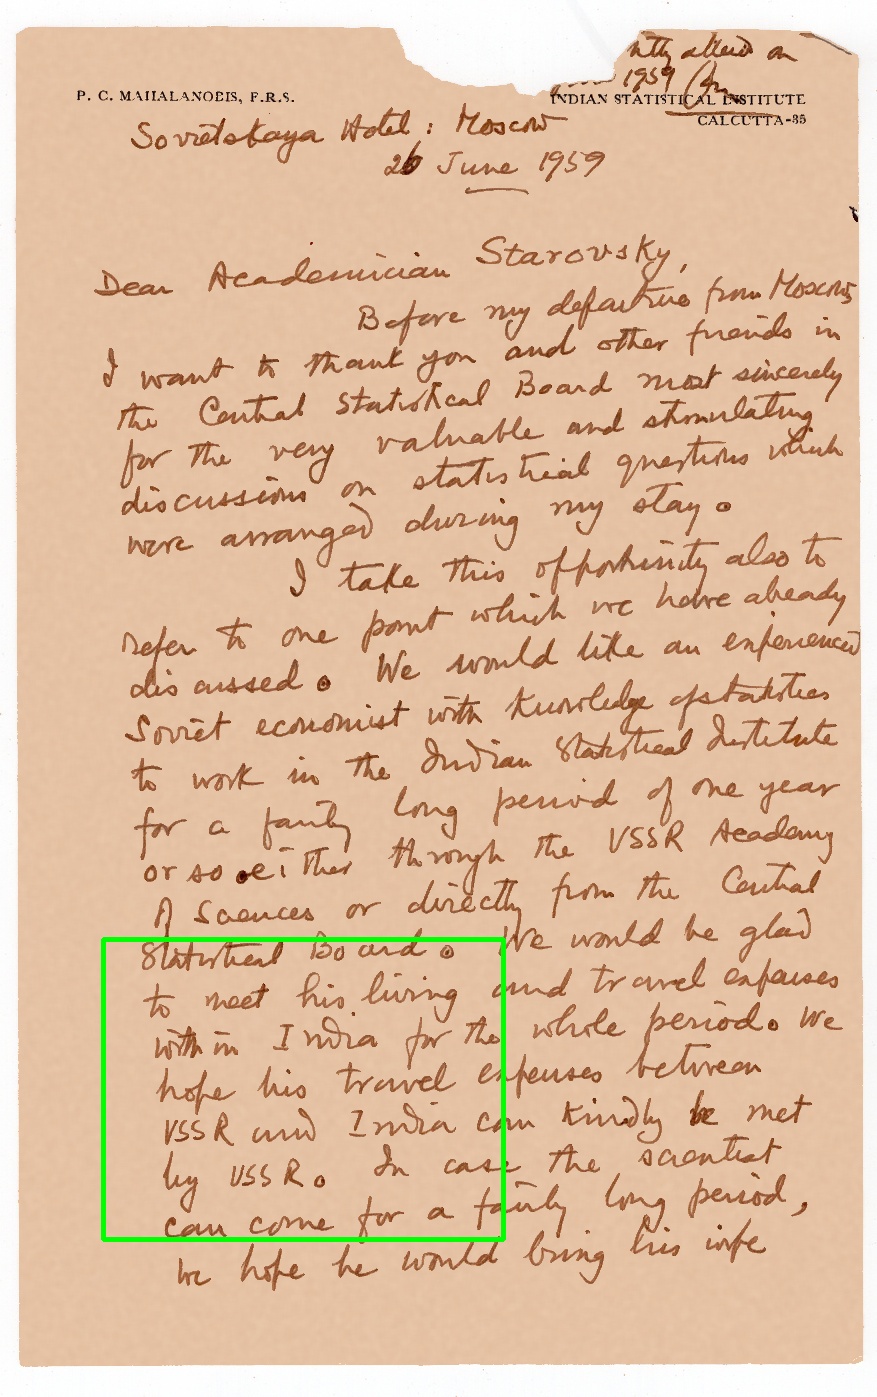 ntly allied on
1959
P. C. MAHALANOBIS, F.R.S.
INDIAN STATISTICAL INSTITUTE
CALCUTTA-35
Sovietskaya Hotel : Moscow
26 June 1959
Dear Academician Starovsky,
Before my departure from Moscow,
I want to thank you and other friends in
the Central Statistical Board most sincerely
for the very valuable and stimulating
discussions on statistical questions which
were arranged during my stay.
I take this opportunity also to
refer to one point which we have already
discussed. We would like an experienced
Soviet economist with knowledge of statistics
to work in the Indian Statistical Institute
for a fairly long period of one year
or so either through the USSR Academy
of Sciences or directly from the Central
Statistical Board. We would be glad
to meet his living and travel expenses
within India for the whole period. We
hope his travel expenses between
USSR and India can kindly be met
by USSR. In case the scientist
can come for a fairly long period,
we hope he would bring his wife